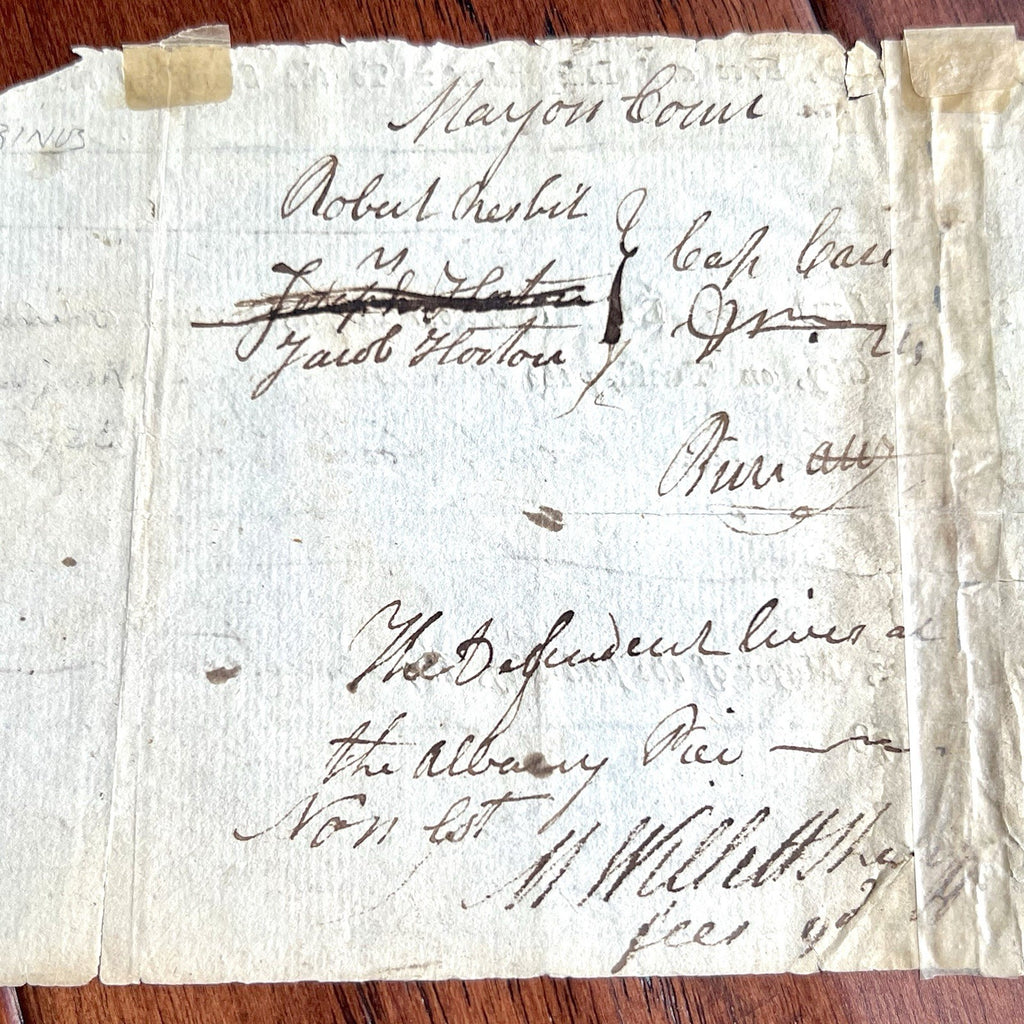 Mayors Court
Robert Nesbit
vs
Joseph Horton
Jacob Horton
Cap Case
Burr atty
The Defendent lives at
the Albany Pier
Non Est
M Willett Sheriff
fees